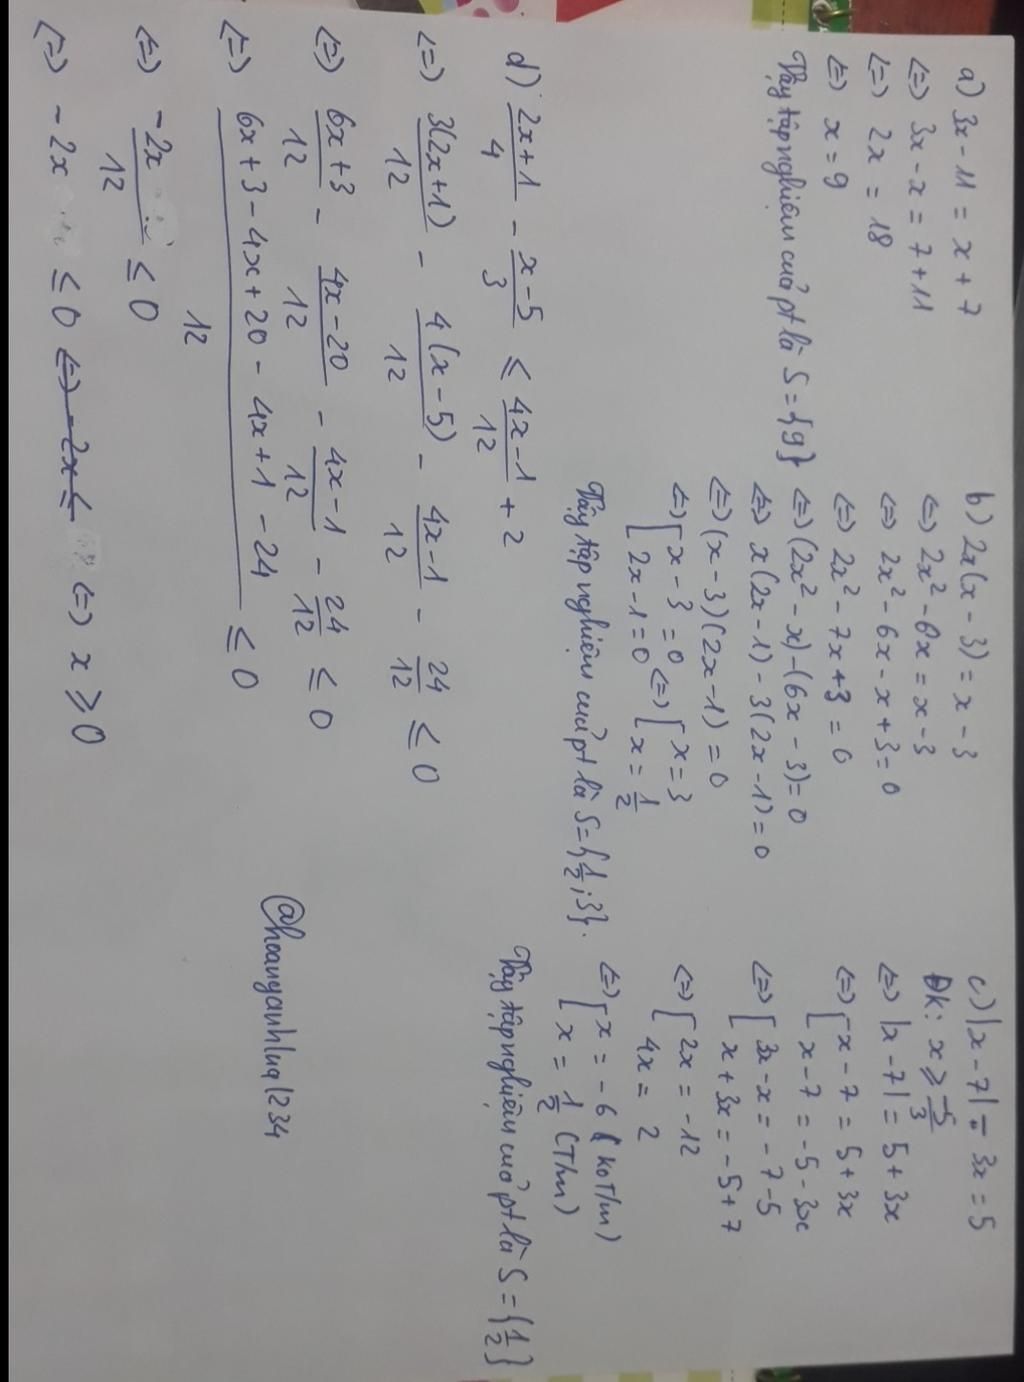 a) 3x - 11 = x + 7
<=> 3x - x = 7 + 11
<=> 2x = 18
<=> x = 9
Vậy tập nghiệm của pt là S = {9}
b) 2x(x - 3) = x - 3
<=> 2x² - 6x = x - 3
<=> 2x² - 6x - x + 3 = 0
<=> 2x² - 7x + 3 = 0
<=> (2x² - x) - (6x - 3) = 0
<=> x(2x - 1) - 3(2x - 1) = 0
<=> (x - 3)(2x - 1) = 0
<=> [x - 3 = 0 <=> [x = 3
[2x - 1 = 0 [x = 1/2
Vậy tập nghiệm của pt là S = {1/2; 3}.
c) |x - 7| - 3x = 5
ĐK: x ≥ -5/3
<=> |x - 7| = 5 + 3x
<=> [x - 7 = 5 + 3x
[x - 7 = -5 - 3x
<=> [3x - x = -7 - 5
[x + 3x = -5 + 7
<=> [2x = -12
[4x = 2
<=> [x = -6 (koT/m)
[x = 1/2 (T/m)
Vậy tập nghiệm của pt là S = {1/2}
d) (2x+1)/4 - (x-5)/3 ≤ (4x-1)/12 + 2
<=> 3(2x+1)/12 - 4(x-5)/12 - (4x-1)/12 - 24/12 ≤ 0
<=> (6x+3)/12 - (4x-20)/12 - (4x-1)/12 - 24/12 ≤ 0
<=> (6x+3-4x+20-4x+1-24)/12 ≤ 0
<=> -2x/12 ≤ 0
<=> -2x ≤ 0 <=> -2x ≤ <=> x ≥ 0
@hoanganhlna1234